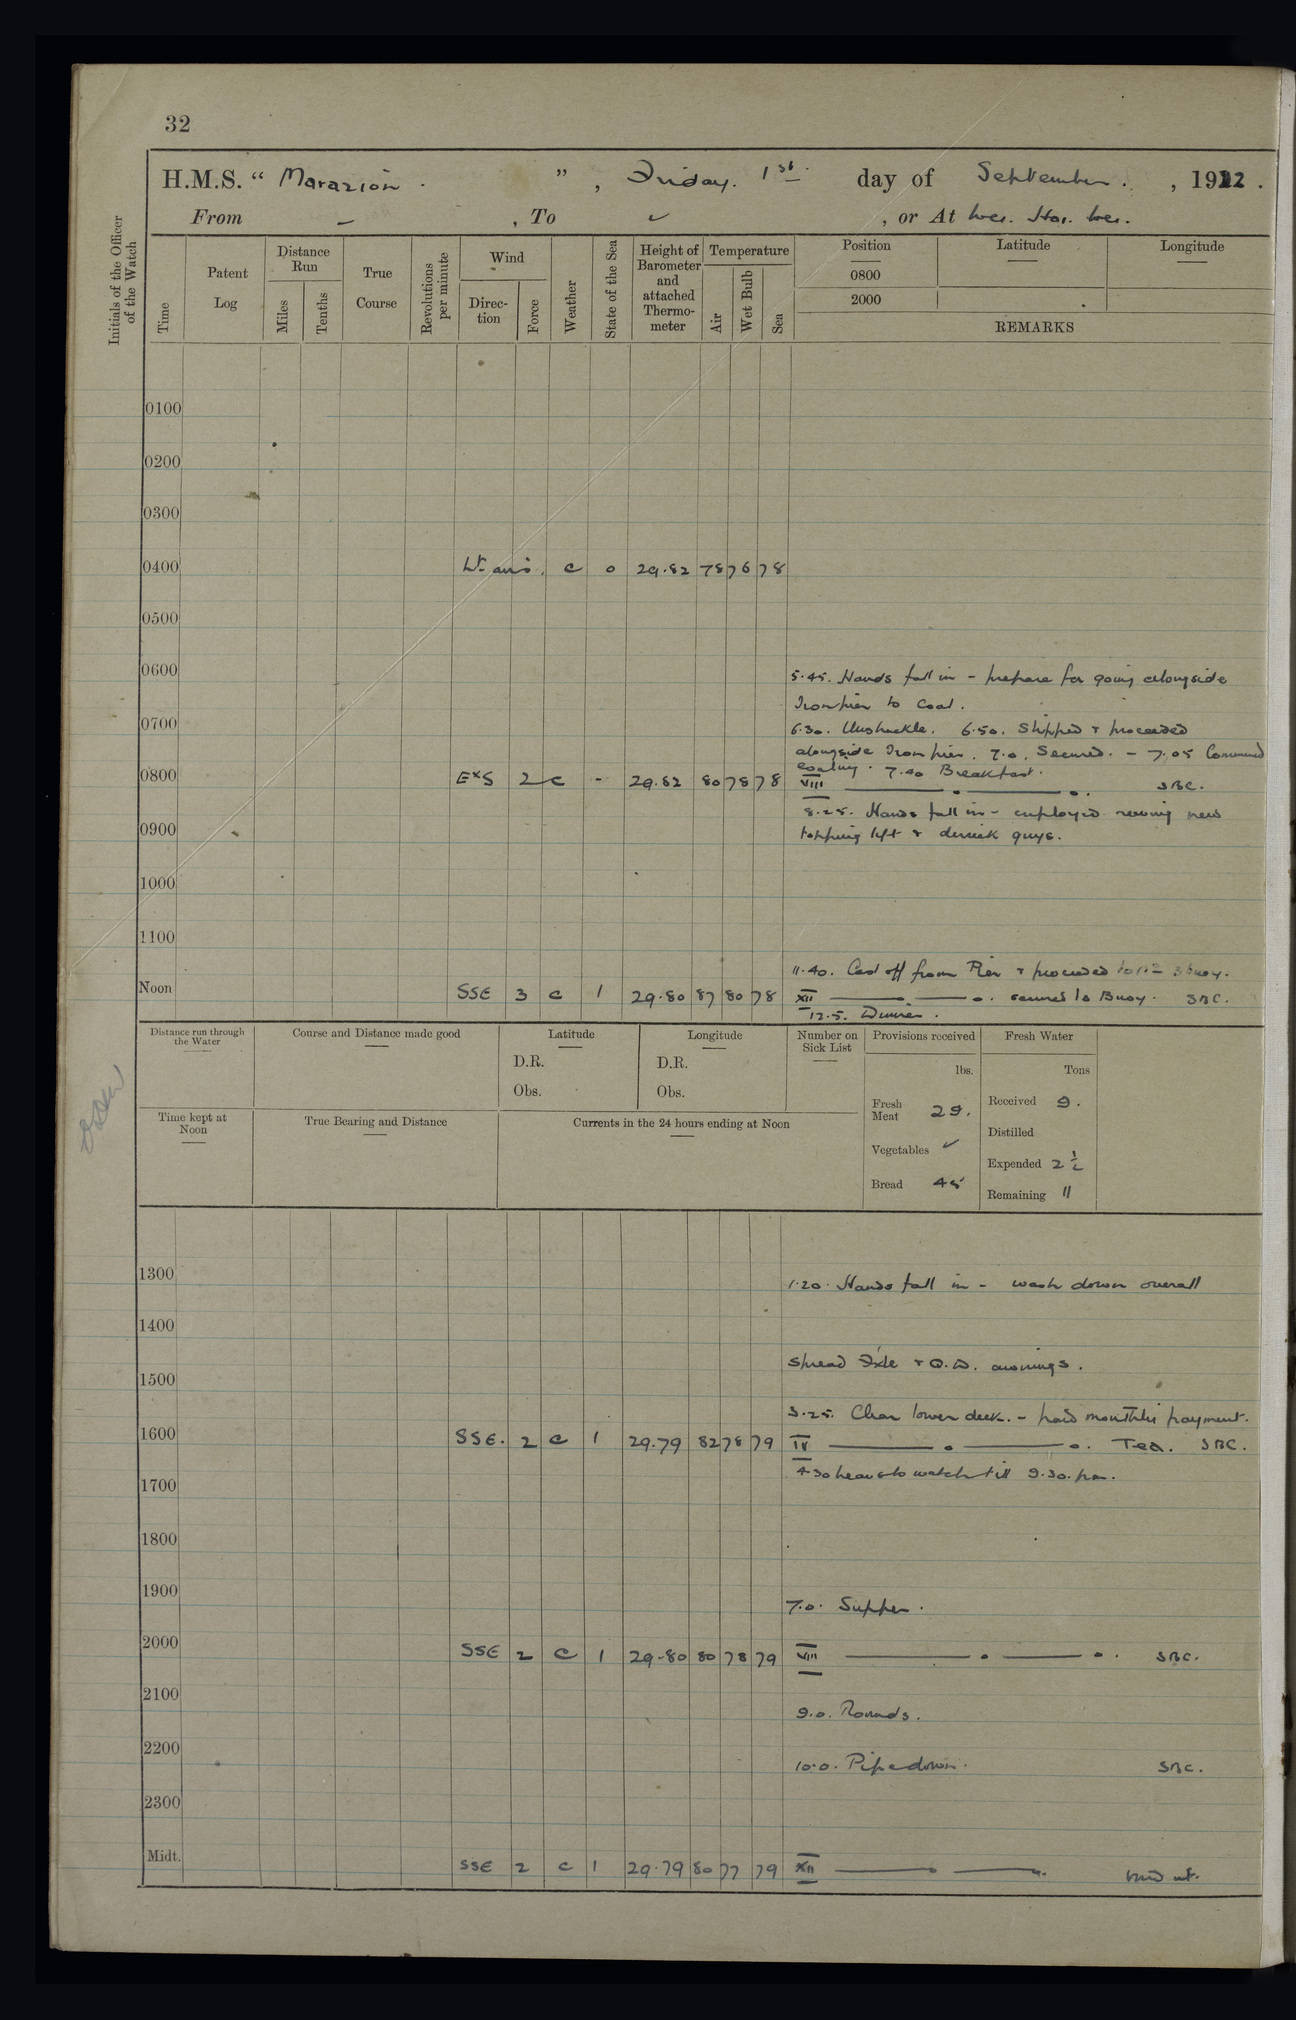 32
H.M.S. “ Marazion ” , Friday. 1st. day of September. , 1922 .
From – , To ✓ , or At Wei. Hai. Wei.
Initials of the Officer of the Watch
Time
Patent Log
Distance Run
Miles
Tenths
True Course
Revolutions per minute
Wind
Direc-tion
Force
Weather
State of the Sea
Height of Barometer and attached Thermo-meter
Temperature
Air
Wet Bulb
Sea
Position
Latitude
Longitude
0800
2000
REMARKS
0100
0200
0300
0400 Lt airs. c 0 29.82 78 76 78
0500
0600
5.45. Hands fall in – prepare for going alongside
Iron pier to Coal.
0700
6.30. Unshackle. 6.50. Slipped & proceeded
alongside Iron pier. 7.0. Secured. – 7.05 Commenced
coaling. 7.40 Breakfast.
0800 ExS 2 c - 29.82 80 78 78 VIII SBC.
8.25. Hands fall in – employed reeving new
topping lift & derrick guys.
0900
1000
1100
11.40. Cast off from Pier & proceeded to Buoy.
Noon SSE 3 c 1 29.80 87 80 78 XII secured to Buoy. SBC.
12.5. Dinner.
Distance run through the Water
Course and Distance made good
Latitude
D.R.
Obs.
Longitude
D.R.
Obs.
Number on Sick List
Provisions received
lbs.
Fresh Meat 29.
Vegetables ✓
Bread 45
Fresh Water
Tons
Received 9.
Distilled
Expended 2 ½
Remaining 11
Time kept at Noon
True Bearing and Distance
Currents in the 24 hours ending at Noon
1300
1.20. Hands fall in – wash down overall
1400
Spread Fx'le & Q.D. awnings.
1500
3.25. Clear lower deck. – paid monthly payment.
1600 SSE. 2 c 1 29.79 82 78 79 IV Tea. SBC.
4.30 leave to watch till 9.30. pm.
1700
1800
1900
7.0. Supper.
2000 SSE 2 c 1 29.80 80 78 79 VIII SBC.
2100
9.0. Rounds.
2200
10.0. Pipe down. SBC.
2300
Midt. SSE 2 c 1 29.79 80 77 79 XII